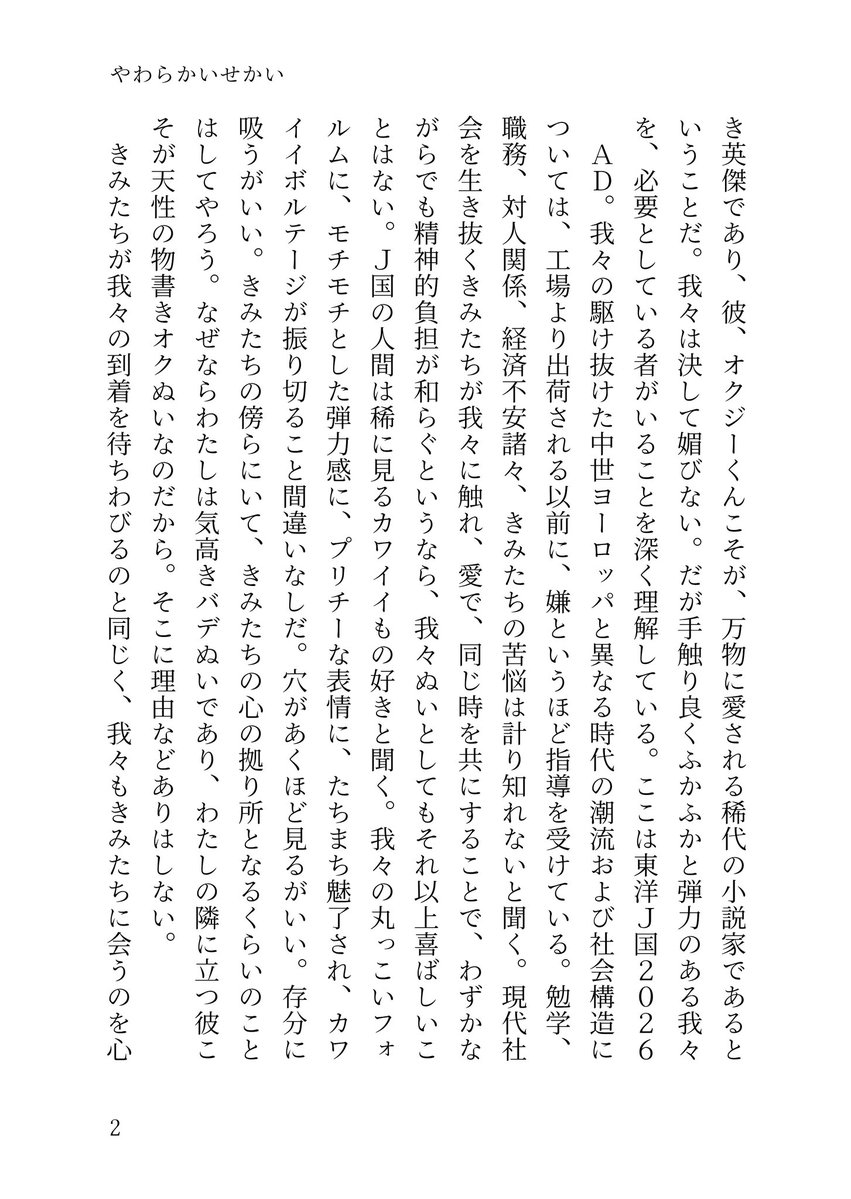 やわらかいせかい
き英傑であり、彼、オクジーくんこそが、万物に愛される稀代の小説家であると
いうことだ。我々は決して媚びない。だが手触り良くふかふかと弾力のある我々
を、必要としている者がいることを深く理解している。ここは東洋Ｊ国２０２６
ＡＤ。我々の駆け抜けた中世ヨーロッパと異なる時代の潮流および社会構造に
ついては、工場より出荷される以前に、嫌というほど指導を受けている。勉学、
職務、対人関係、経済不安諸々、きみたちの苦悩は計り知れないと聞く。現代社
会を生き抜くきみたちが我々に触れ、愛で、同じ時を共にすることで、わずかな
がらでも精神的負担が和らぐというなら、我々ぬいとしてもそれ以上喜ばしいこ
とはない。Ｊ国の人間は稀に見るカワイイもの好きと聞く。我々の丸っこいフォ
ルムに、モチモチとした弾力感に、プリチーな表情に、たちまち魅了され、カワ
イイボルテージが振り切ること間違いなしだ。穴があくほど見るがいい。存分に
吸うがいい。きみたちの傍らにいて、きみたちの心の拠り所となるくらいのこと
はしてやろう。なぜならわたしは気高きバデぬいであり、わたしの隣に立つ彼こ
そが天性の物書きオクぬいなのだから。そこに理由などありはしない。
きみたちが我々の到着を待ちわびるのと同じく、我々もきみたちに会うのを心
2